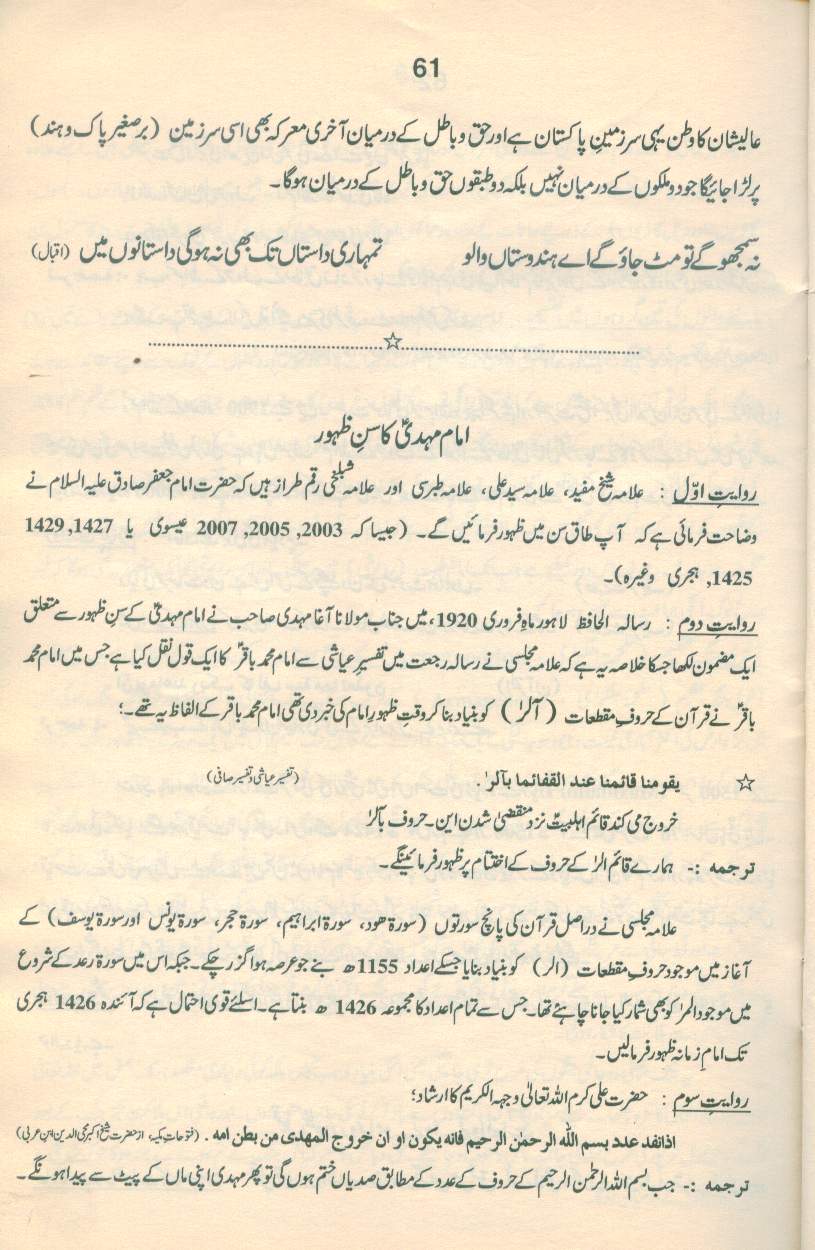 61
عالیشان کا وطن یہی سرزمینِ پاکستان ہے اور حق و باطل کے درمیان آخری معرکہ بھی اسی سرزمین (برصغیر پاک و ہند)
پر لڑا جائیگا جو دو ملکوں کے درمیان نہیں بلکہ دو طبقوں حق و باطل کے درمیان ہوگا۔
نہ سمجھو گے تو مٹ جاؤ گے اے ہندوستاں والو تمہاری داستاں تک بھی نہ ہوگی داستانوں میں (اقبال)
امام مہدیؑ کا سنِ ظہور
روایتِ اوّل : علامہ شیخ مفید، علامہ سید علی، علامہ طبرسی اور علامہ شبلنجی رقم طراز ہیں کہ حضرت امام جعفر صادق علیہ السلام نے
وضاحت فرمائی ہے کہ آپ طاق سن میں ظہور فرمائیں گے۔ (جیسا کہ 2003, 2005, 2007 عیسوی یا 1427, 1429
1425, ہجری وغیرہ)۔
روایتِ دوم : رسالہ الحافظ لاہور ماہِ فروری 1920ء میں جناب مولانا آغا مہدی صاحب نے امام مہدیؑ کے سنِ ظہور سے متعلق
ایک مضمون لکھا جسکا خلاصہ یہ ہے کہ علامہ مجلسی نے رسالہ رجعت میں تفسیرِ عیاشی سے امام محمد باقرؑ کا ایک قول نقل کیا ہے جس میں امام محمد
باقرؑ نے قرآن کے حروفِ مقطعات (آلرٰ) کو بنیاد بنا کر وقتِ ظہورِ امام کی خبر دی تھی امام محمد باقر کے الفاظ یہ تھے۔؛
☆ یقومنا قائمنا عند القفائما بآلرٰ۔ (تفسیر عیاشی و تفسیر صافی)
خروج می کند قائم اہلبیتؑ نزو منقضیٰ شدن این۔ حروف بآلرٰ
ترجمہ :- ہمارے قائم الرٰ کے حروف کے اختتام پر ظہور فرمائینگے۔
علامہ مجلسی نے دراصل قرآن کی پانچ سورتوں (سورۃ ھود، سورۃ ابراہیم، سورۃ حجر، سورۃ یونس اور سورۃ یوسف) کے
آغاز میں موجود حروفِ مقطعات (الر) کو بنیاد بنایا جسکے اعداد 1155ھ بنے جو عرصہ ہوا گزر چکے۔ جبکہ اس میں سورۃ رعد کے شروع
میں موجود المرٰ کو بھی شمار کیا جانا چاہئے تھا۔ جس سے تمام اعداد کا مجموعہ 1426 ھ بنتا ہے۔ اسلئے قوی احتمال ہے کہ آئندہ 1426 ہجری
تک امامِ زمانہ ظہور فرمالیں۔
روایتِ سوم : حضرت علی کرم اللہ تعالیٰ وجہہ الکریم کا ارشاد؛
اذانفد عدد بسم اللہ الرحمٰن الرحیم فانه یکون او ان خروج المهدی من بطن امه . (فتوحاتِ مکیہ، از حضرت شیخ اکبر محی الدین ابنِ عربی)
ترجمہ :- جب بسم اللہ الرحمٰن الرحیم کے حروف کے عدد کے مطابق صدیاں ختم ہوں گی تو پھر مہدی اپنی ماں کے پیٹ سے پیدا ہونگے۔